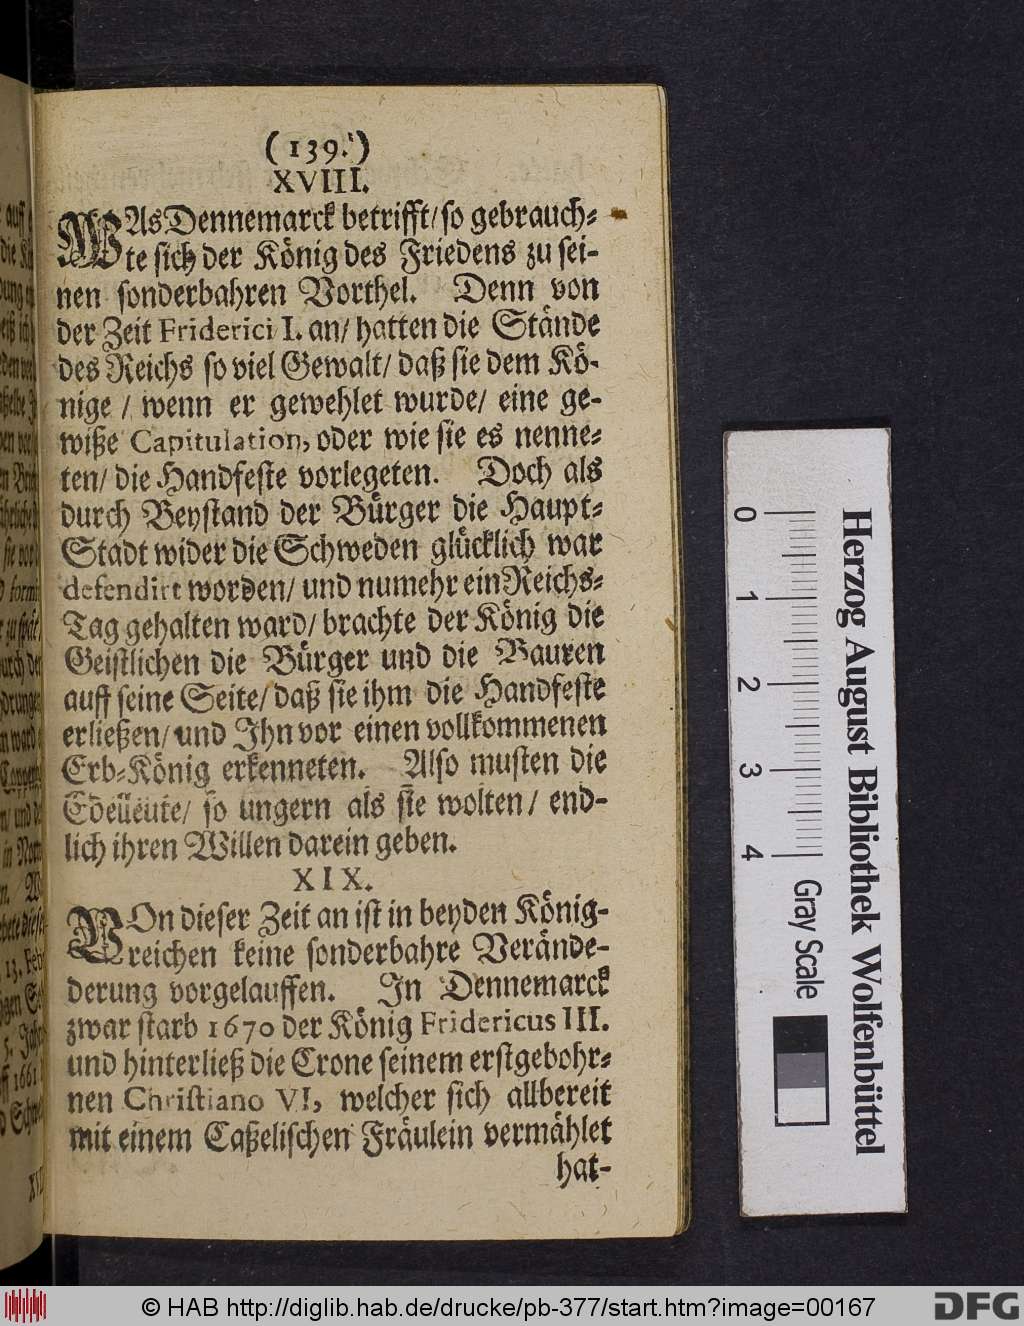 (139.)
XVIII.
WAs Dennemarck betrifft/ so gebrauch-
te sich der König des Friedens zu sei-
nen sonderbahren Vorthel. Denn von
der Zeit Friderici I. an/ hatten die Stände
des Reichs so viel Gewalt/ daß sie dem Kö-
nige / wenn er gewehlet wurde/ eine ge-
wiße Capitulation, oder wie sie es nenne-
ten/ die Handfeste vorlegeten. Doch als
durch Beystand der Bürger die Haupt-
Stadt wider die Schweden glücklich war
defendirt worden/ und numehr ein Reichs-
Tag gehalten ward/ brachte der König die
Geistlichen die Bürger und die Bauren
auff seine Seite/ daß sie ihm die Handfeste
erließen/ und Ihn vor einen vollkommenen
Erb-König erkenneten. Also musten die
so ungern als sie wolten/ end-
lich ihren Willen darein geben.
XIX.
VOn dieser Zeit an ist in beyden König-
reichen keine sonderbahre Verände-
derung vorgelauffen. In Dennemarck
zwar starb 1670 der König Fridericus III.
und hinterließ die Crone seinem erstgebohr-
nen Christiano VI, welcher sich allbereit
mit einem Caßelischen Fräulein vermählet
hat-
0 1 2 3 4
Gray Scale
Herzog August Bibliothek Wolfenbüttel
© HAB http://diglib.hab.de/drucke/pb-377/start.htm?image=00167
DFG